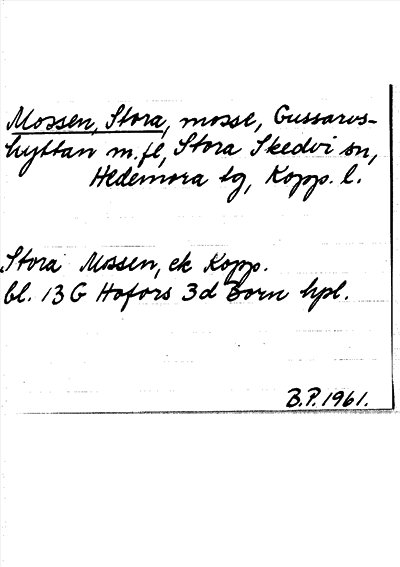 Mossen, Stora, mosse, Gussarvs-
hyttan m.fl, Stora Skedvi sn,
Hedemora tg, Kopp. l.
Stora Mossen, ek Kopp.
bl. 13 G Hofors 3d Born hpl.
B.P. 1961.